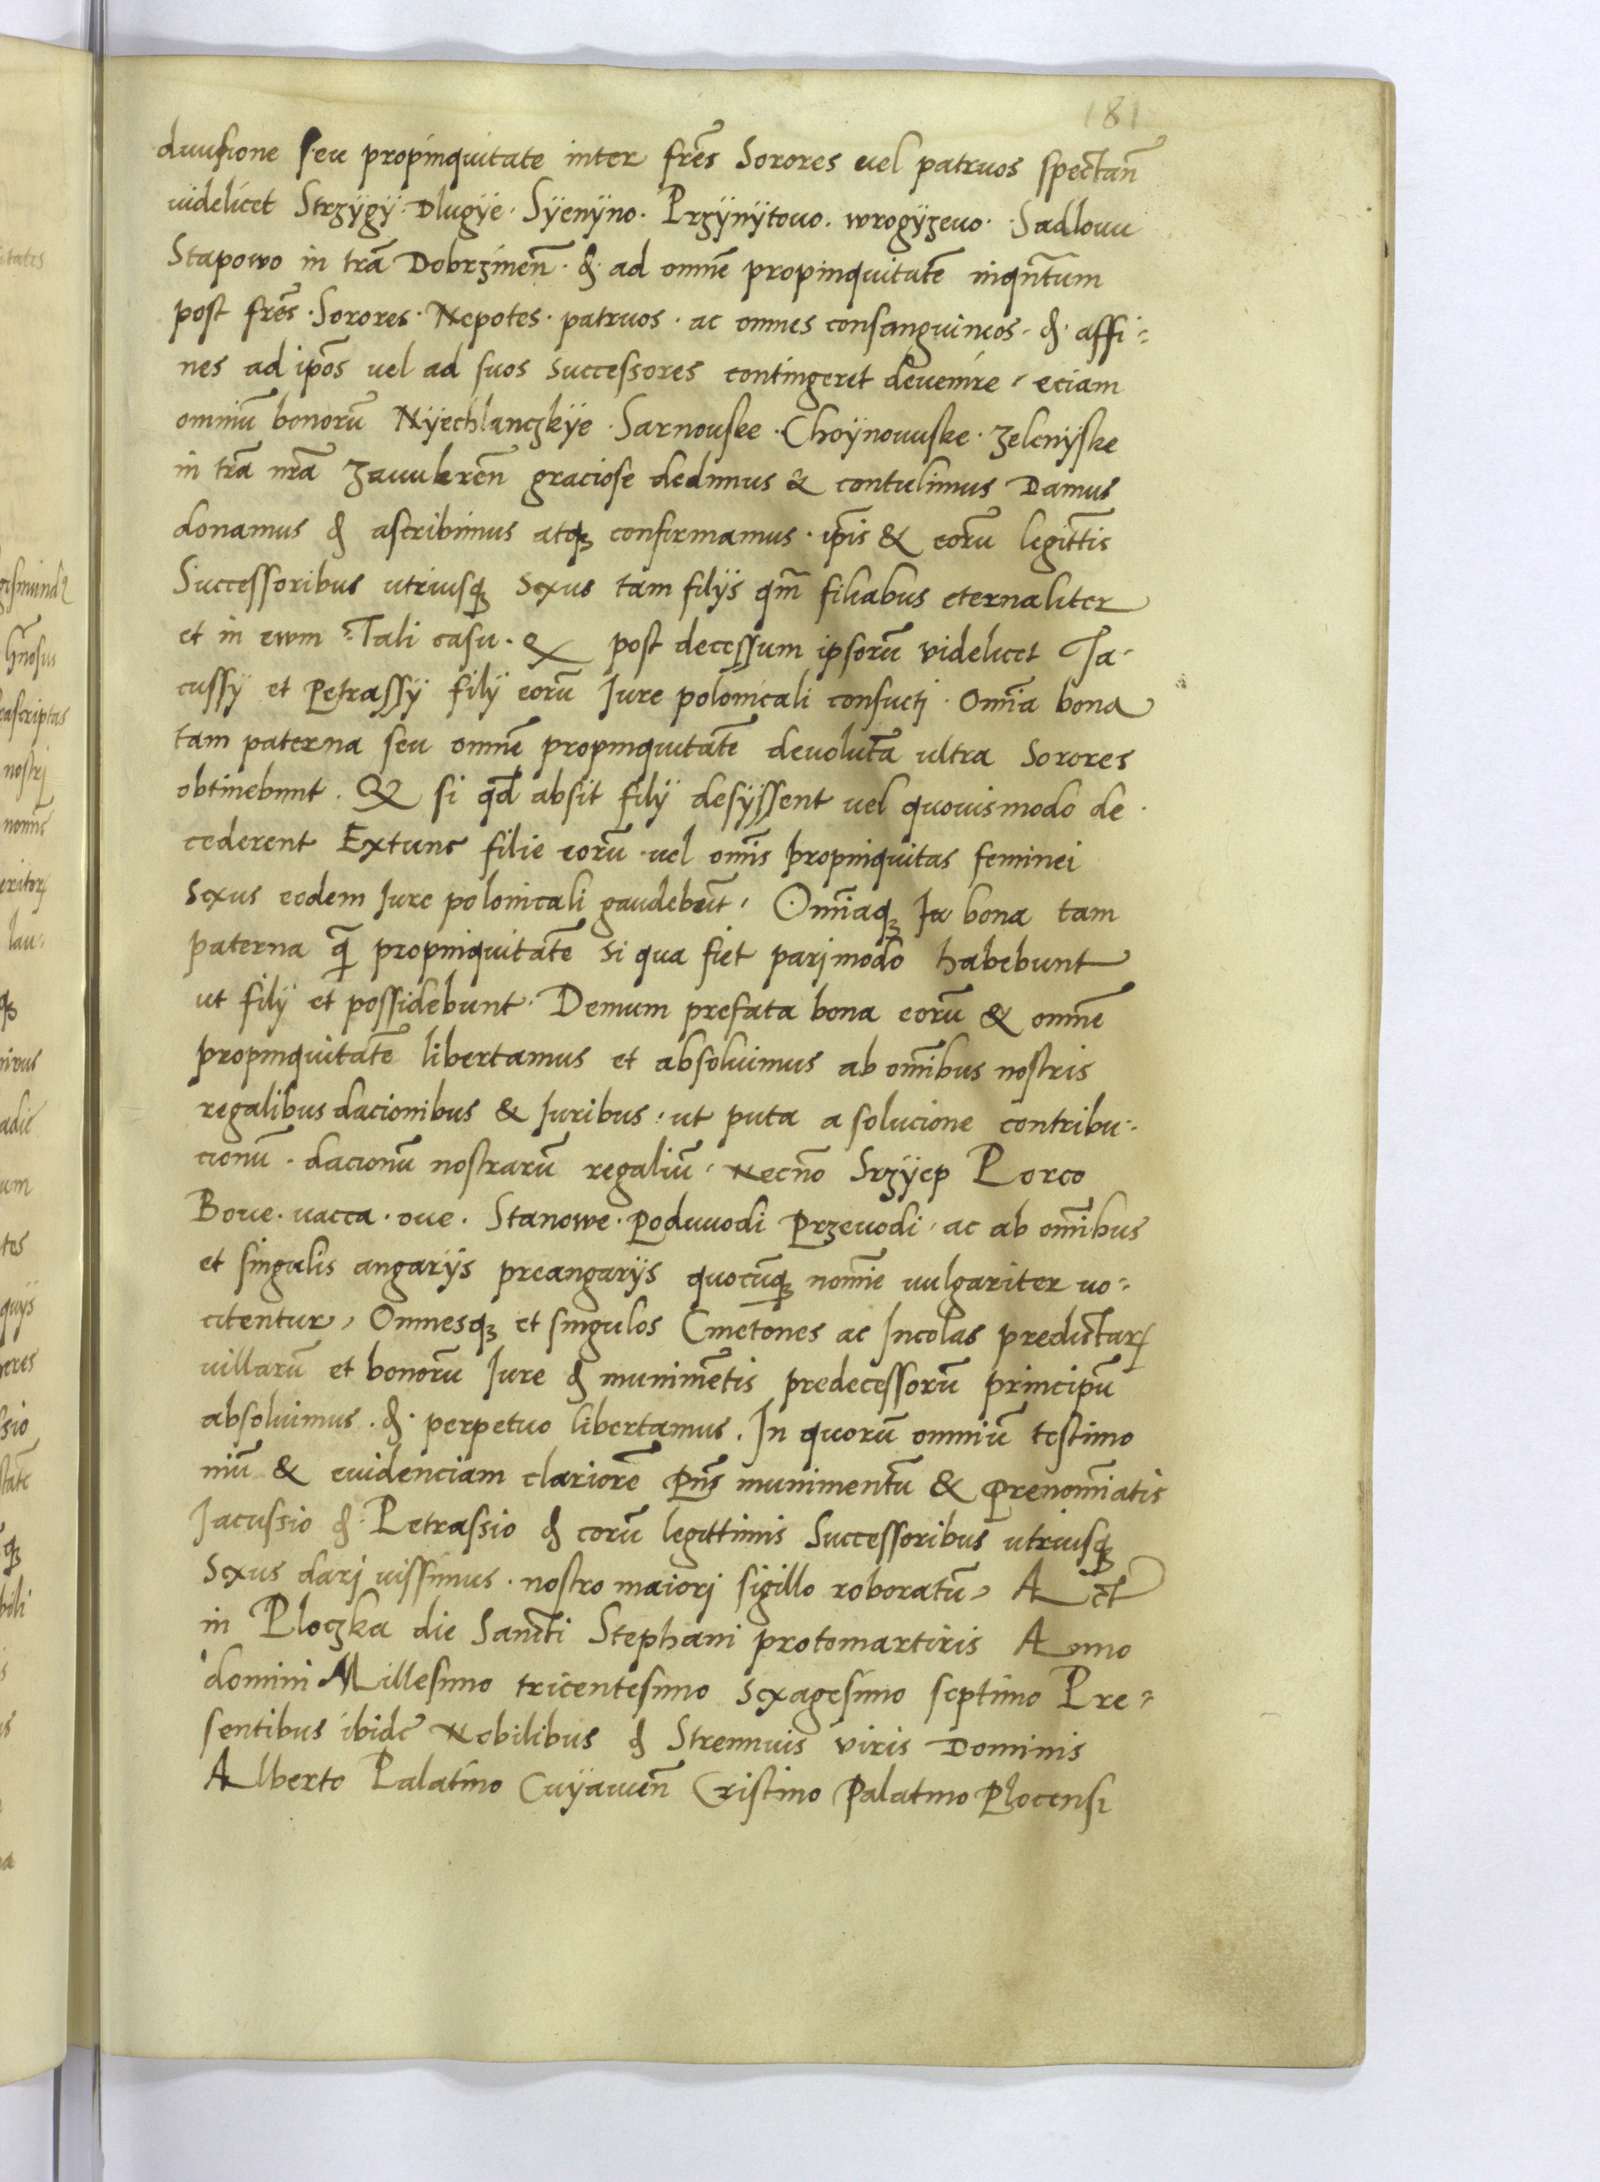 181
diuisione seu propinquitate inter fr̃es Sorores uel patruos spectañ
uidelicet Strzÿgÿ · Dlugÿe · Sÿenÿno · Przÿnÿtouo · wrogÿzeuo · Sadlouu
Stapowo in tr̃a Dobrzineñ · & ad omnẽ propinquitatẽ inqñtum
post fr̃es · Sorores · Nepotes · patruos · ac omnes consanguineos · & · affi-
nes ad ip̃os uel ad suos successores contingeret deuenire, eciam
omniũ bonorũ Nÿechlanczkÿe · Sarnouske · Choÿnouuske · zelenÿske
in tr̃a nr̃a Zauukreñ graciose dedimus & contulimus Damus
donamus & ascribimus atqꝫ confirmamus · ip̃is & eorũ legitt̃is
Successoribus utriusqꝫ sexus tam filÿs qm̃ filiabus eternaliter
et in ewm Tali casu · Q post decessum ipsorũ videlicet Ja-
cussÿ et Petrassÿ filÿ eorũ Iure polonicali consueti · Om̃ia bona
tam paterna seu omnẽ propinquitatẽ deuolutã ultra Sorores
obtinebunt · Q si qd̃ absit filÿ desÿssent uel quouismodo de
cederent Extunc filie eorũ uel om̃is propinquitas feminei
sexus eodem Iure polonicali gaudebũt, Om̃iaqꝫ Ia bona tam
paterna q̃ propinquitatẽ si qua fiet parimodo habebunt
ut filÿ et possidebunt · Demum prefata bona eorũ & omnẽ
propinquitatẽ libertamus et absoluimus ab om̃ibus nostris
regalibus dacionibus & Iuribus, ut puta a solucione contribu-
cionũ · dacionũ nostrarũ regaliũ, Necño Srzÿep Porco
Boue · uacca · oue · Stanowe · Poduuodi Przeuodi, ac ab om̃ibus
et singulis angarÿs preangarÿs quocũqꝫ nomĩe uulgariter uo-
citentur, Omnesqꝫ et singulos Cmetones ac Incolas predictarꝝ
uillarũ et bonorũ Iure & munimẽtis predecessorũ principũ
absoluimus · & · perpetuo libertamus. In quorũ omniũ testimo
niũ & euidenciam clariorẽ pñs munimentũ & prenom̃iatis
Jacussio & · Petrassio & eorũ legittimis Successoribus utriusqꝫ
Sexus dari iussimus · nostro maiori sigillo roboratũ, Act̃
in Ploczka die Sancti Stephani protomartiris Anno
domini Millesimo tricentesimo sexagesimo septimo Pre-
sentibus ibidẽ Nobilibus & Strennuis viris Dominis
Alberto Palatino Cuÿauieñ Cristino Palatino Plocensi